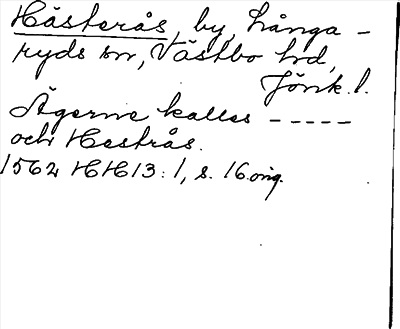 Hästerås, by, Långa-
ryds sn, Västbo hd,
Jönk. l.
Ägorne kalles -----
och Hestrås.
1562 HH 13:1, s. 16 orig.